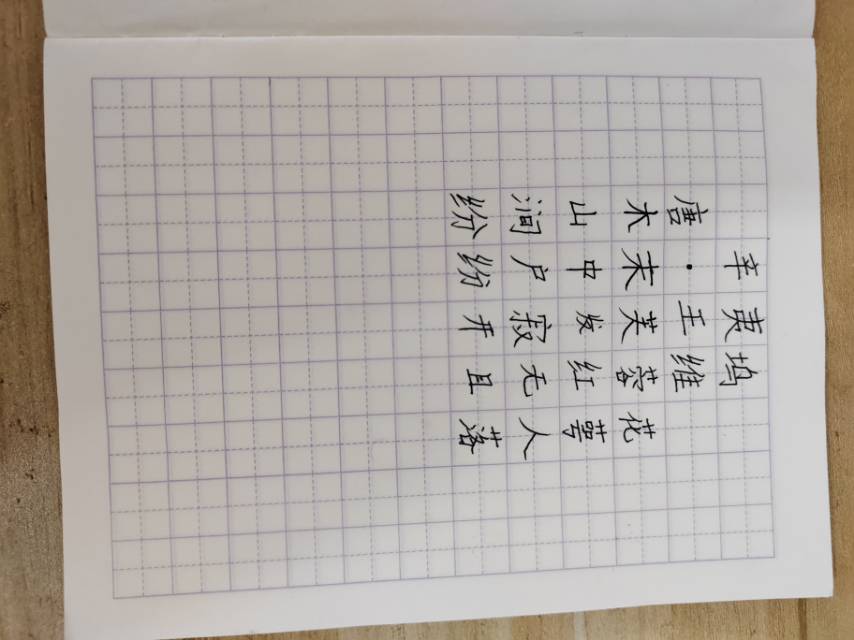 辛夷坞
唐·王维
木末芙蓉花
山中发红萼
涧户寂无人
纷纷开且落